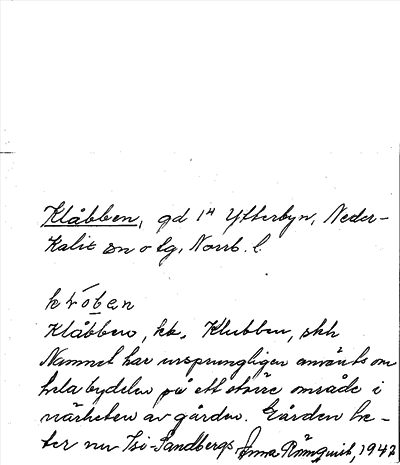 Klåbben, gd 1⁴ Ytterbyn, Neder-
Kalix sn o tg, Norrb. l.
Klåbben, kb. Klubben, skh
Namnet har ursprungligen använts om
hela bydelen på ett större område i
närheten av gården. Gården he-
ter nu Isi-Sandbergs Anna Rönnquist, 1942